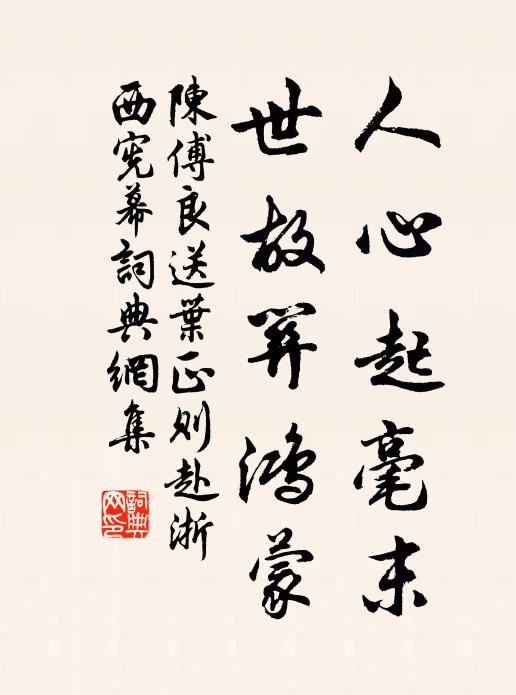 人心起毫末
世故開鴻蒙
陳傅良送葉正则赴浙
西宪幕詞典網集
詞典
网印